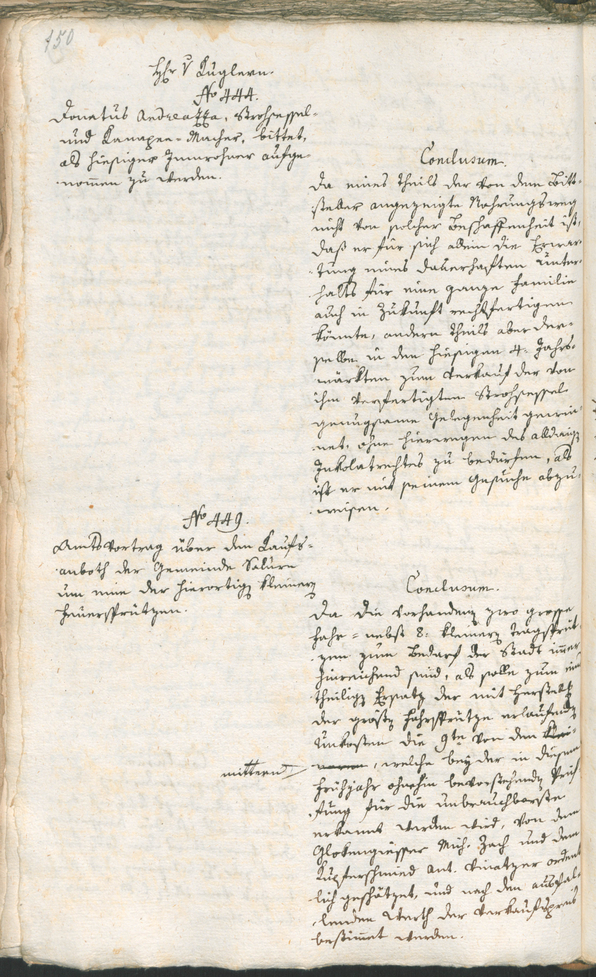 150
Hhr v Kuglern.
No 444.
Donatus Andreazza, Strohsessel-
und Kanapee-Macher, bittet,
als hiesiger Innwohner aufge-
nommen zu werden.
Conclusum.
Da eines Theils der von dem Bitt-
steller angezeigte Nahrungsweg
nicht von solcher Beschaffenheit ist,
daß er für sich allein die Erwar-
tung eines dauerhaften Unter-
halts für eine ganze Familie
auch in Zukunft rechtfertigen
könnte, andern Theils aber der-
selbe in den hiesigen 4. Jahr-
märkten zum Verkauf der von
ihm verfertigten Strohsessel
genugsame Gelegenheit gewin-
net, ohne hierwegen des
Inkolatrechtes zu bedürfen, als
ist er mit seinem Gesuche abzu-
weisen.
No 449.
Amtsvortrag über den Kaufs-
anboth der Gemeinde Salurn
um eine der hierortigen kleinern
Feuersprützen.
Conclusum.
Da die vorhandenen zwo grosse
Fahr- nebst 8. kleinern Tragsprüt-
zen zum Bedarf der Stadt
hinreichend sind, als solle zum
theiligen Ersatz der mit Herstellung
der großen Fahrsprütze erlaufenden
Unkosten die 9te von den
mittern, welche bey der in diesem
Frühjahr ohnehin bevorstehenden Prü-
fung für die unbrauchbarste
erkannt werden wird, von dem
Glokengiesser Mich. Zach und dem
Kupferschmied Ant. Vinatzer ordent-
lich geschätzet, und nach dem ausfal-
lenden Werth der Verkaufspreis
bestimmt werden.